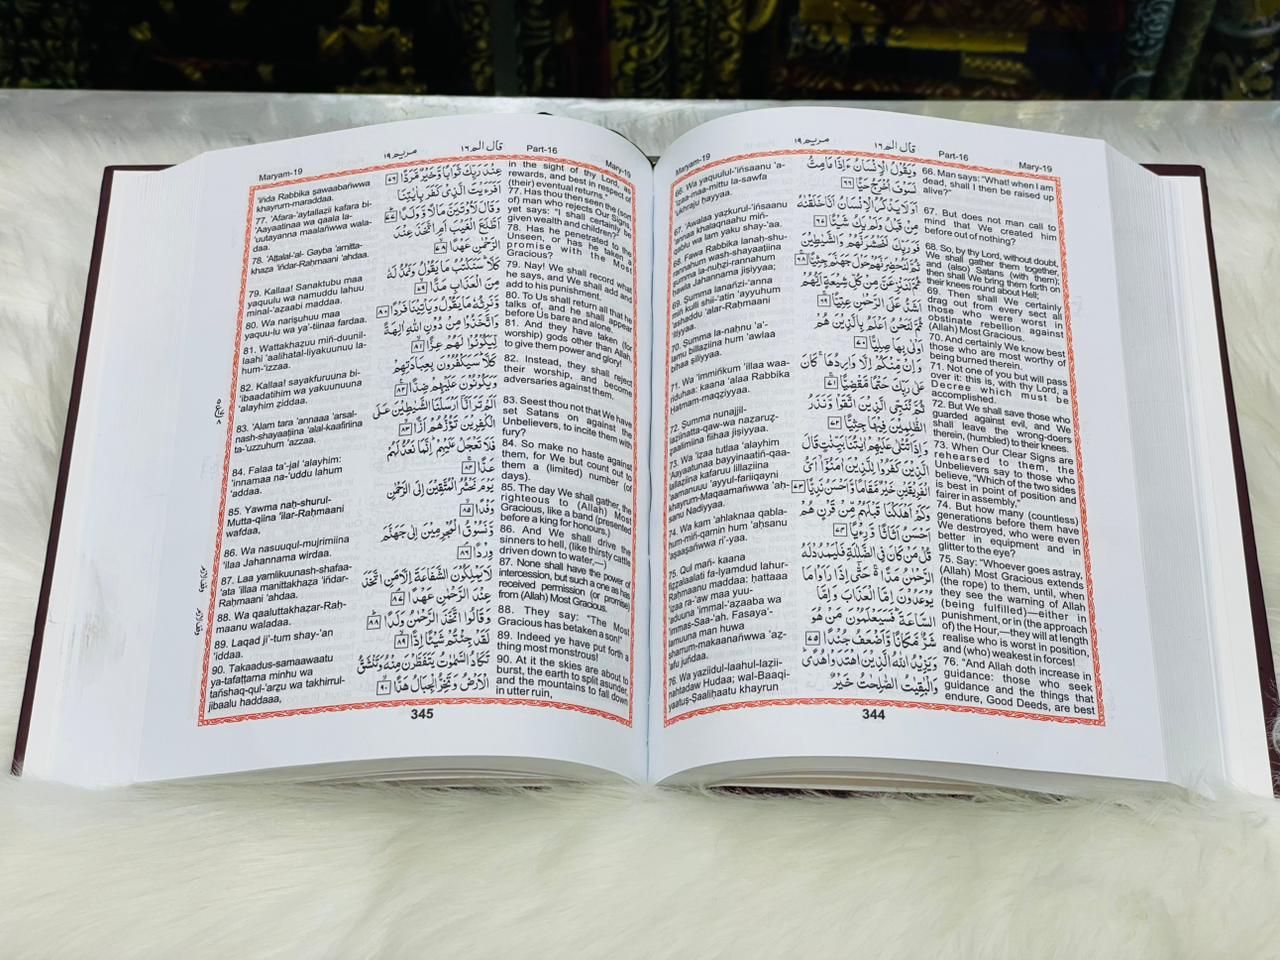 Maryam-19
مريم ١٩
قال الم ١٦
Part-16
Mary-19
66. Wa yaquulul-'iñsaanu 'a-
'izaa-maa-mittu la-sawfa
'ukhraju ḥayyaa.
67. Awalaa yazkurul-'iñsaanu
'annaa khalaqnaahu miñ-
qablu wa lam yaku shay-'aa.
68. Fawa Rabbika lanaḥ-shu-
rannahum wash-shayaaṭiina
summa la-nuḥẓi-rannahum
ḥawla Jahannama jisiyyaa;
69. Summa lanañzi-'anna
miñ kulli shii-'atin 'ayyuhum
'ashaddu 'alar-Raḥmaani
'itiyyaa.
70. Summa la-naḥnu 'a'-
lamu billaziina hum 'awlaa
bihaa ṣiliyyaa.
71. Wa 'immiñkum 'illaa waa-
riduhaa: kaana 'alaa Rabbika
Ḥatmam-maqẓiyyaa.
72. Summa nunajjil-
laziinatta-qaw-wa nazaruẓ-
ẓaalimiina fiihaa jisiyyaa.
73. Wa 'izaa tutlaa 'alayhim
'Aayaatunaa bayyinaatiñ-qaa-
lallaziina kafaruu lillaziina
'aamanuuu 'ayyul-fariiqayni
khayrum-Maqaamañwwa 'aḥ-
sanu Nadiyyaa.
74. Wa kam 'ahlaknaa qabla-
hum-miñ-qarnin hum 'aḥsanu
'aṣaaṣañwwa ri'-yaa.
75. Qul mañ- kaana
fiẓẓalaalati fa-lyamdud lahur-
Raḥmaanu maddaa: ḥattaaa
'izaa ra-'aw maa yuu-
'aduuna 'immal-'azaaba wa
'immas-Saa-'ah. Fasaya'-
lamuuna man huwa
sharrum-makaanañwwa 'aẓ-
'afu juñdaa.
76. Wa yaziidul-laahul-lazii-
nahtadaw Hudaa; wal-Baaqi-
yaatuṣ-Ṣaaliḥaatu khayrun
وَيَقُولُ الْإِنْسَانُ ءَإِذَا مَا مِتُّ
لَسَوْفَ أُخْرَجُ حَيًّا ٦٦
أَوَلَا يَذْكُرُ الْإِنْسَانُ أَنَّا خَلَقْنَاهُ
مِنْ قَبْلُ وَلَمْ يَكُ شَيْئًا ٦٧
فَوَرَبِّكَ لَنَحْشُرَنَّهُمْ وَالشَّيٰطِيْنَ
ثُمَّ لَنُحْضِرَنَّهُمْ حَوْلَ جَهَنَّمَ جِثِيًّا ٦٨
ثُمَّ لَنَنْزِعَنَّ مِنْ كُلِّ شِيْعَةٍ أَيُّهُمْ
أَشَدُّ عَلَى الرَّحْمٰنِ عِتِيًّا ٦٩
ثُمَّ لَنَحْنُ أَعْلَمُ بِالَّذِيْنَ هُمْ
أَوْلٰى بِهَا صِلِيًّا ٧٠
وَإِنْ مِنْكُمْ إِلَّا وَارِدُهَا كَانَ
عَلٰى رَبِّكَ حَتْمًا مَقْضِيًّا ٧١
ثُمَّ نُنَجِّى الَّذِيْنَ اتَّقَوْا وَنَذَرُ
الظّٰلِمِيْنَ فِيْهَا جِثِيًّا ٧٢
وَإِذَا تُتْلٰى عَلَيْهِمْ اٰيٰتُنَا بَيِّنٰتٍ قَالَ
الَّذِيْنَ كَفَرُوْا لِلَّذِيْنَ اٰمَنُوْا أَيُّ
الْفَرِيْقَيْنِ خَيْرٌ مَقَامًا وَأَحْسَنُ نَدِيًّا ٧٣
وَكَمْ أَهْلَكْنَا قَبْلَهُمْ مِنْ قَرْنٍ هُمْ
أَحْسَنُ أَثَاثًا وَرِءْيًا ٧٤
قُلْ مَنْ كَانَ فِى الضَّلٰلَةِ فَلْيَمْدُدْ لَهُ
الرَّحْمٰنُ مَدًّا حَتّٰى إِذَا رَأَوْا مَا
يُوْعَدُوْنَ إِمَّا الْعَذَابَ وَإِمَّا
السَّاعَةَ فَسَيَعْلَمُوْنَ مَنْ هُوَ
شَرٌّ مَكَانًا وَأَضْعَفُ جُنْدًا ٧٥
وَيَزِيْدُ اللّٰهُ الَّذِيْنَ اهْتَدَوْا هُدًى
وَالْبٰقِيٰتُ الصّٰلِحٰتُ خَيْرٌ
66. Man says: "What! when I am
dead, shall I then be raised up
alive?"
67. But does not man call to
mind that We created him
before out of nothing?
68. So, by thy Lord, without doubt,
We shall gather them together,
and (also) Satans (with them);
then shall We bring them forth on
their knees round about Hell;
69. Then shall We certainly
drag out from every sect all
those who were worst in
obstinate rebellion against
(Allah) Most Gracious.
70. And certainly We know best
those who are most worthy of
being burned therein.
71. Not one of you but will pass
over it: this is, with thy Lord, a
Decree which must be
accomplished.
72. But We shall save those who
guarded against evil, and We
shall leave the wrong-doers
therein, (humbled) to their knees.
73. When Our Clear Signs are
rehearsed to them, the
Unbelievers say to those who
believe, "Which of the two sides
is best in point of position and
fairer in assembly."
74. But how many (countless)
generations before them have
We destroyed, who were even
better in equipment and in
glitter to the eye?
75. Say: "Whoever goes astray,
(Allah) Most Gracious extends
(the rope) to them, until, when
they see the warning of Allah
(being fulfilled)—either in
punishment, or in (the approach
of) the Hour,—they will at length
realise who is worst in position,
and (who) weakest in forces!
76. "And Allah doth increase in
guidance: those who seek
guidance and the things that
endure, Good Deeds, are best
344
Maryam-19
مريم ١٩
قال الم ١٦
Part-16
Mary-19
'iñda Rabbika ṣawaabañwwa
khayrum-maraddaa.
77. 'Afara-'aytallaẓii kafara bi-
'Aayaatinaa wa qaala la-
'uutayanna maalañwwa wala-
daa.
78. 'Aṭṭalal-'al- Gayba 'amitta-
khaẓa 'iñdar-Raḥmaani 'ahdaa.
79. Kallaa! Sanaktubu maa
yaquulu wa namuddu lahuu
minal-'aẓaabi maddaa.
80. Wa nariṣuhuu maa
yaquu-lu wa ya'-tiinaa fardaa.
81. Wattakhaẓuu miñ-duunil-
laahi 'aalihatal-liyakuunuu la-
hum-'izzaa.
82. Kallaa! sayakfuruuna bi-
'ibaadatihim wa yakuunuuna
'alayhim ẓiddaa.
83. 'Alam tara 'annaaa 'arsal-
nash-shayaaṭiina 'alal-kaafiriina
ta-'uzzuhum 'azzaa.
84. Falaa ta'-jal 'alayhim:
'innamaa na-'uddu lahum
'addaa.
85. Yawma naḥ-shurul-
Mutta-qiina 'ilar-Raḥmaani
wafdaa,
86. Wa nasuuqul-mujrimiina
'ilaa Jahannama wirdaa.
87. Laa yamlikuunash-shafaa-
'ata 'illaa manittakhaẓa 'iñdar-
Raḥmaani 'ahdaa.
88. Wa qaaluttakhaẓar-Raḥ-
maanu waladaa.
89. Laqad ji'-tum shay-'an
'iddaa.
90. Takaadus-samaawaatu
ya-tafaṭṭarna minhu wa
tañshaq-qul-'arẓu wa takhirrul-
jibaalu haddaaa,
عِنْدَ رَبِّكَ ثَوَابًا وَخَيْرٌ مَرَدًّا ٧٦
أَفَرَءَيْتَ الَّذِى كَفَرَ بِاٰيٰتِنَا
وَقَالَ لَأُوْتَيَنَّ مَالًا وَوَلَدًا ٧٧
أَطَّلَعَ الْغَيْبَ أَمِ اتَّخَذَ عِنْدَ
الرَّحْمٰنِ عَهْدًا ٧٨
كَلَّا سَنَكْتُبُ مَا يَقُوْلُ وَنَمُدُّ لَهُ
مِنَ الْعَذَابِ مَدًّا ٧٩
وَنَرِثُهُ مَا يَقُوْلُ وَيَأْتِيْنَا فَرْدًا ٨٠
وَاتَّخَذُوْا مِنْ دُوْنِ اللّٰهِ اٰلِهَةً
لِيَكُوْنُوْا لَهُمْ عِزًّا ٨١
كَلَّا سَيَكْفُرُوْنَ بِعِبَادَتِهِمْ
وَيَكُوْنُوْنَ عَلَيْهِمْ ضِدًّا ٨٢
أَلَمْ تَرَ أَنَّا أَرْسَلْنَا الشَّيٰطِيْنَ عَلَى
الْكٰفِرِيْنَ تَؤُزُّهُمْ أَزًّا ٨٣
فَلَا تَعْجَلْ عَلَيْهِمْ إِنَّمَا نَعُدُّ لَهُمْ
عَدًّا ٨٤
يَوْمَ نَحْشُرُ الْمُتَّقِيْنَ إِلَى الرَّحْمٰنِ
وَفْدًا ٨٥
وَنَسُوْقُ الْمُجْرِمِيْنَ إِلٰى جَهَنَّمَ
وِرْدًا ٨٦
لَا يَمْلِكُوْنَ الشَّفَاعَةَ إِلَّا مَنِ اتَّخَذَ
عِنْدَ الرَّحْمٰنِ عَهْدًا ٨٧
وَقَالُوا اتَّخَذَ الرَّحْمٰنُ وَلَدًا ٨٨
لَقَدْ جِئْتُمْ شَيْئًا إِدًّا ٨٩
تَكَادُ السَّمٰوٰتُ يَتَفَطَّرْنَ مِنْهُ وَتَنْشَقُّ
الْأَرْضُ وَتَخِرُّ الْجِبَالُ هَدًّا ٩٠
in the sight of thy Lord, as
rewards, and best in respect of
(their) eventual returns."
77. Has thou then seen the (sort
of) man who rejects Our Signs,
yet says: "I shall certainly be
given wealth and children?"
78. Has he penetrated to the
Unseen, or has he taken a
promise with the Most
Gracious?
79. Nay! We shall record what
he says, and We shall add and
add to his punishment.
80. To Us shall return all that he
talks of, and he shall appear
before Us bare and alone.
81. And they have taken (for
worship) gods other than Allah,
to give them power and glory!
82. Instead, they shall reject
their worship, and become
adversaries against them.
83. Seest thou not that We have
set Satans on against the
Unbelievers, to incite them with
fury?
84. So make no haste against
them, for We but count out to
them a (limited) number (of
days).
85. The day We shall gather the
righteous to (Allah) Most
Gracious, like a band (presented
before a king for honours.)
86. And We shall drive the
sinners to hell, (like thirsty cattle
driven down to water,—)
87. None shall have the power of
intercession, but such a one as has
received permission (or promise)
from (Allah) Most Gracious.
88. They say: "The Most
Gracious has betaken a son!"
89. Indeed ye have put forth a
thing most monstrous!
90. At it the skies are about to
burst, the earth to split asunder,
and the mountains to fall down
in utter ruin,
345